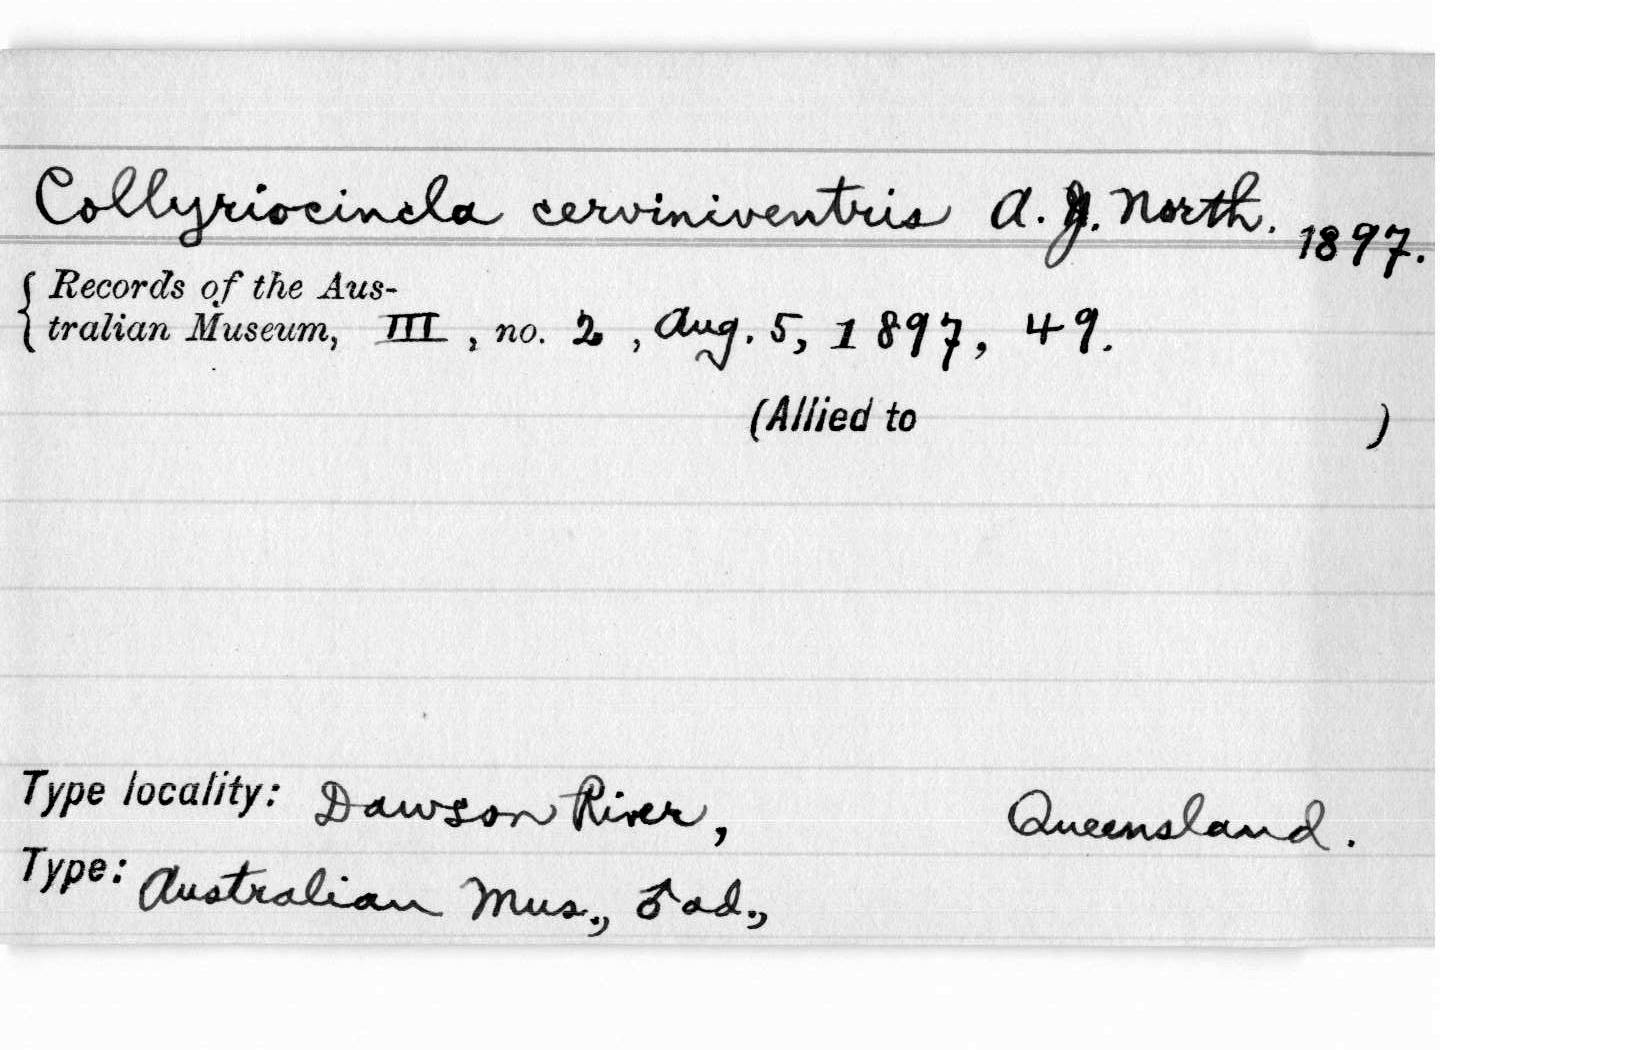 Collyriocincla cerviniventris A. J. North. 1897.
{ Records of the Aus-
tralian Museum, III, no. 2, Aug. 5, 1897, 49.
(Allied to )
Type locality: Dawson River, Queensland.
Type: Australian Mus., ♂ ad.,